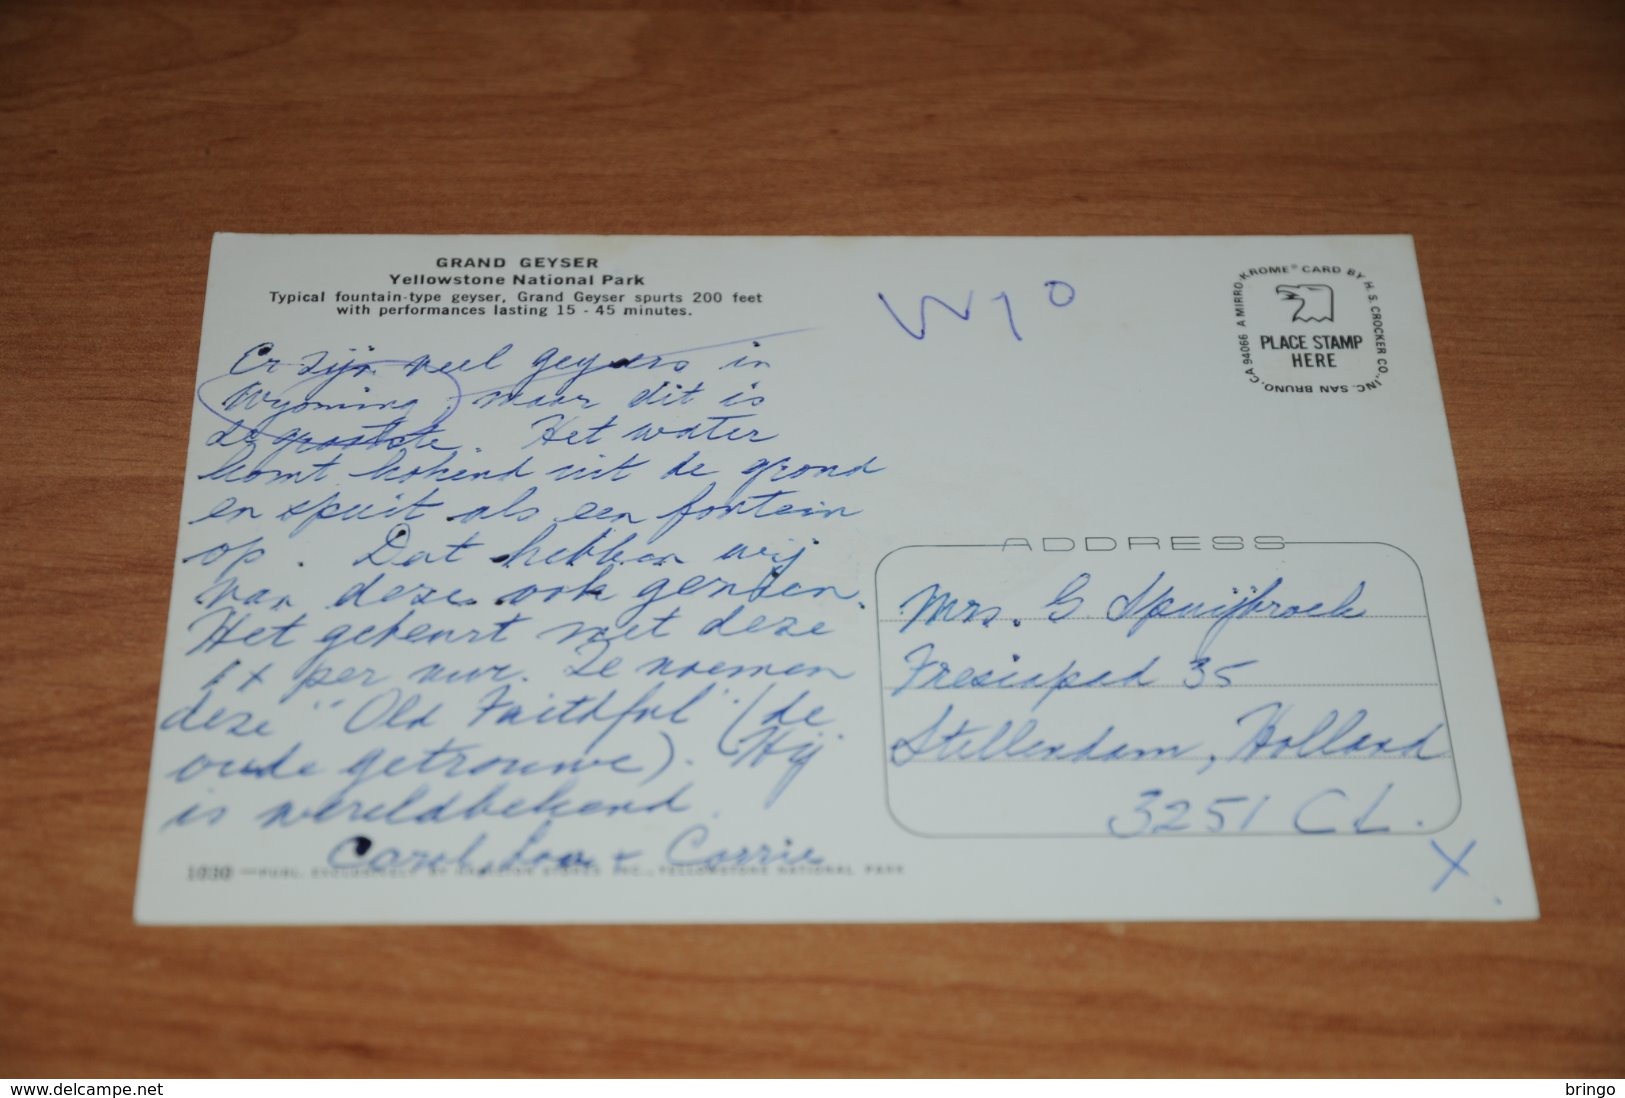 GRAND GEYSER
Yellowstone National Park
Typical fountain-type geyser, Grand Geyser spurts 200 feet
with performances lasting 15 - 45 minutes.
Er zijn veel geysers in
Wyoming, maar dit is
de grootste. Het water
komt kokend uit de grond
en spuit als een fontein
op. Dat hebben wij
van deze ook gezien.
Het gebeurt met deze
1x per uur. Ze noemen
deze "Old Faithful" (de
oude getrouwe). Hij
is wereldbekend.
Carol, + Corrie
1030 — PUBL. EXCLUSIVELY BY HAMILTON STORES, INC., YELLOWSTONE NATIONAL PARK
Wyo
A MIRRO-KROME® CARD BY H. S. CROCKER CO., INC. SAN BRUNO, CA 94066
PLACE STAMP
HERE
ADDRESS
Mrs. G. Spuijbroek
Fresiapad 35
Stellendam, Holland
3251 CL.
X
www.delcampe.net
bringo